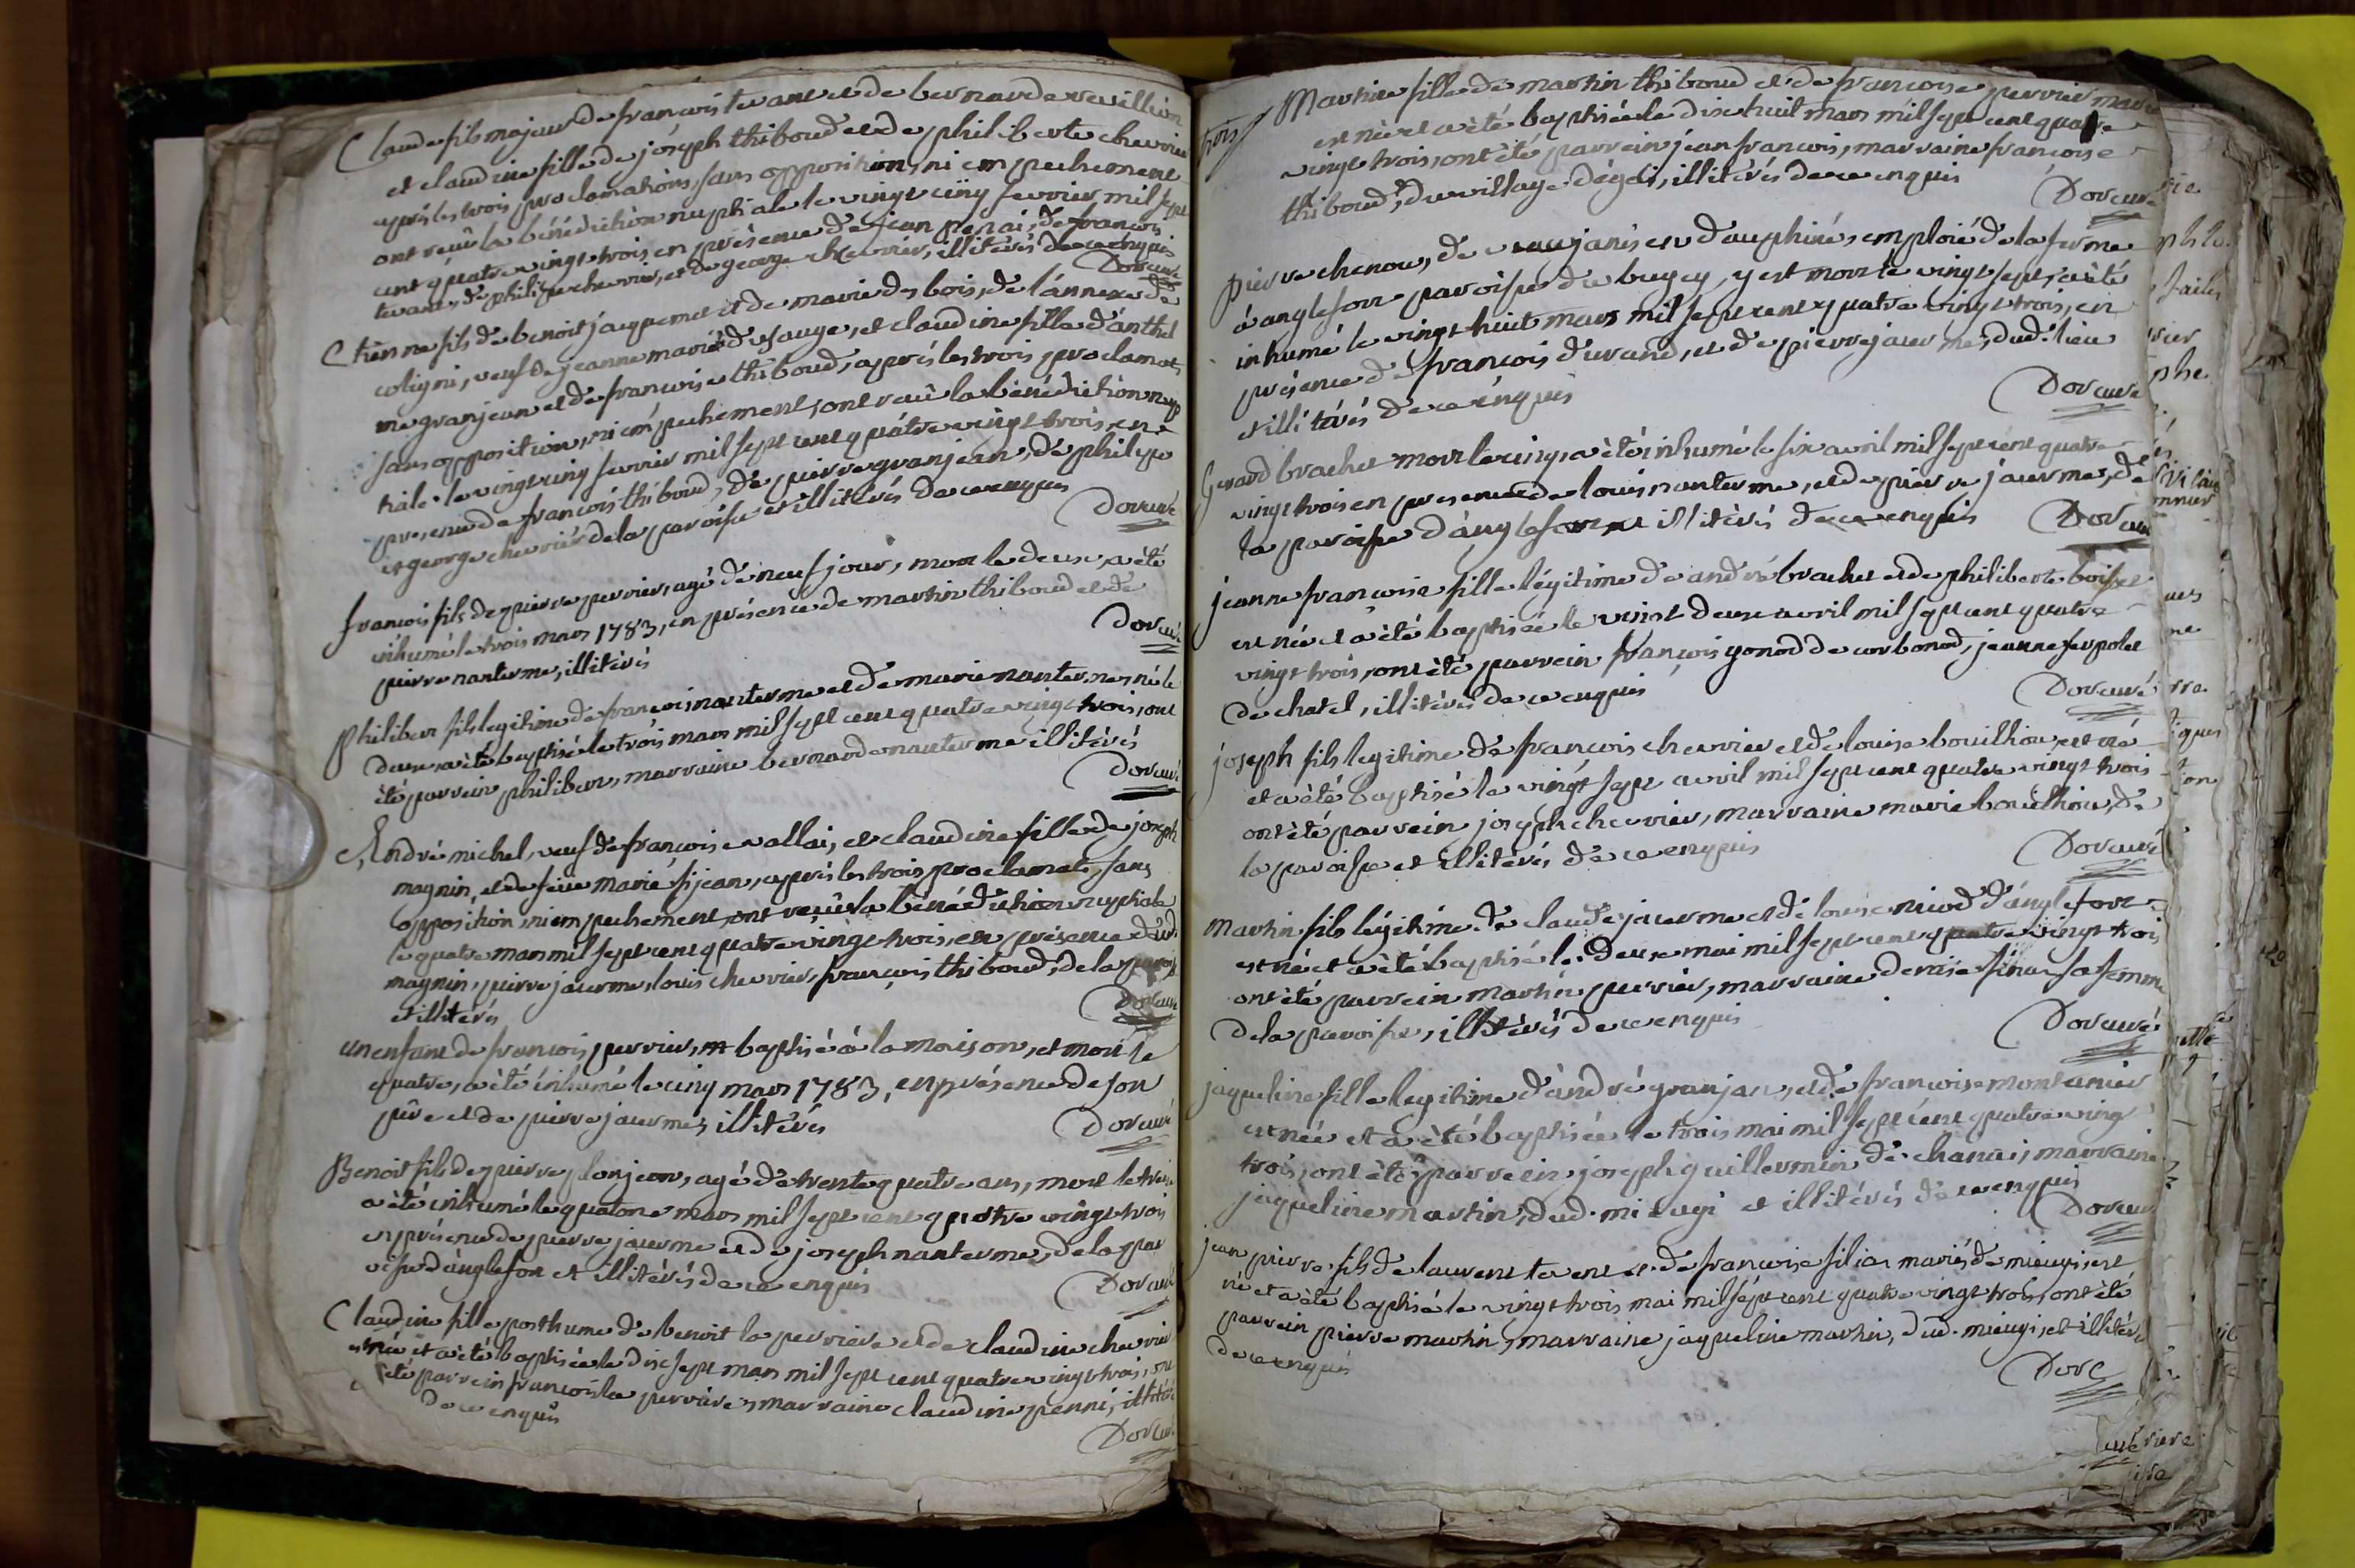 Claude fils majeur de françois tevant et de bernarde
et claudine fille de joseph thiboud et de philiberte chevrier
après les trois proclamations, sans opposition, ni empechement
ont reçû la bénédiction nuptiale le vingt cinq fevrier mil sept
cent quatre vingt trois en présence de jean penai, de françois
tevant, de philipe chevrier, et de george chevrier, illitèrés de ce enquis
Dor curé
Etienne fils de benoit jaquemet et de marie desbois, de l'annexe de
coligni, veuf de jeanne marie dusauge, et claudine fille d'anthel
me granjean et de françoise thiboud, après les trois proclamat.
sans opposition, ni empechement, ont reçû la bénédiction nup
tiale le vingt cinq fevrier mil sept cent quatre vingt trois, en
presence de françois thiboud, de pierre granjean, de philipe
et george chevrier de la paroisse et illitérés de ce enquis
Dor curé
françois fils de pierre perrier, agé de neuf jour, mort le deux, a été
inhumé le trois mars 1783, en présence de martin thiboud et de
pierre nanterme, illitérés
Dor curé
Philibert fils legitime de françois nanterme et de marie nanterme, né le
deux, a été baptisé le trois mars mil sept cent quatre vingt trois, ont
été parrein philibert, marraine bernarde nanterme illitérés
Dor curé
André michel, veuf de françoise vallai, et claudine fille de joseph
magnin, et de feue marie fijean, après les trois proclamat., sans
opposition ni empechement, ont reçû la bénédiction nuptiale
le quatre mars mil sept cent quatre vingt trois, en présence
magnin, pierre jacerme, louis chevrier, françois thiboud, de la parois
et illitérés
Dor curé
un enfant de françois perrier, baptisé à la maison, et mort le
quatre, a été inhumé le cinq mars 1783, en présence de son
père et de pierre jacerme, illitérés
Dor curé
Benoit fils de pierre plonjeon, agé de trente quatre ans, mort le treize
a été inhumé le quatorze mars mil sept cent quatre vingt trois
en présence de pierre jacerme et de joseph nanterme, de la par
oisse d'anglefort et illitérés de ce enquis
Dor curé
Claudine fille posthume de benoit la perriere et de claudine chevrier
est née et a été baptisée le dix sept mars mil sept cent quatre vingt trois, ont
été parrein françois la perriere, marraine claudine penni, illitéré
de ce enquis
Dor curé
trois
Martine fille de martin thiboud et de françoise perrier mariés
est née et a été baptisée le dix huit mars mil sept cent quatre
vingt trois, ont été parrein jean françois, marraine françoise
thiboud, du village dégai, illitérés de ce enquis
Dor curé
pierre chenou, de en dauphiné, emploié de la ferme
à anglefort paroisse du bugey, y est mort le vingt sept, a été
inhumé le vingt huit mars mil sept cent quatre vingt trois, en
présence de françois durand, et de pierre jacerme, dud. lieu
et illitérés de ce enquis
Dor curé
Gerard brachet mort le cinq, a été inhumé le six avril mil sept cent quatre
vingt trois en presence de louis nanterme, et de pierre jacerme, de
la paroisse d'anglefort et illitérés de ce enquis
Dor curé
jeanne françoise fille légitime de andré brachet et de philiberte boisset
est née et a été baptisée le vingt deux avril mil sept cent quatre
vingt trois, ont été parrein françois gonod de corbonod, jeanne serpolet
de chatel, illitérés de ce enquis
Dor curé
joseph fils legitime de françois chevrier et de louise bouillion, est né
et a été baptisé le vingt sept avril mil sept cent quatre vingt trois
ont été parrein joseph chevrier, marraine marie bouillion, de
la paroisse et illitérés de ce enquis
Dor curé
Martin fils légitime de claude jacerme et de louise niod d'anglefort
est né et a été baptisé le deux mai mil sept cent quatre vingt trois
ont été parrein martin perrier, marraine denise sa femme
de la paroisse, illitérés de ce enquis
Dor curé
jaqueline fille legitime d'andré granjan, et de françoise montanier
est née et a été baptisée le trois mai mil sept cent quatre vingt
trois, ont été parrein joseph guillermin de chanai, marraine
jaqueline martin, dud. mieugi et illitérés de ce enquis
Dor curé
jean pierre fils de laurent tevent et de françoise filion mariés de mieugi, est
né et a été baptisé le vingt trois mai mil sept cent quatre vingt trois, ont été
parrein pierre martin, marraine jaqueline martin, dud. mieugi, et illitérés
de ce enquis
Dor C